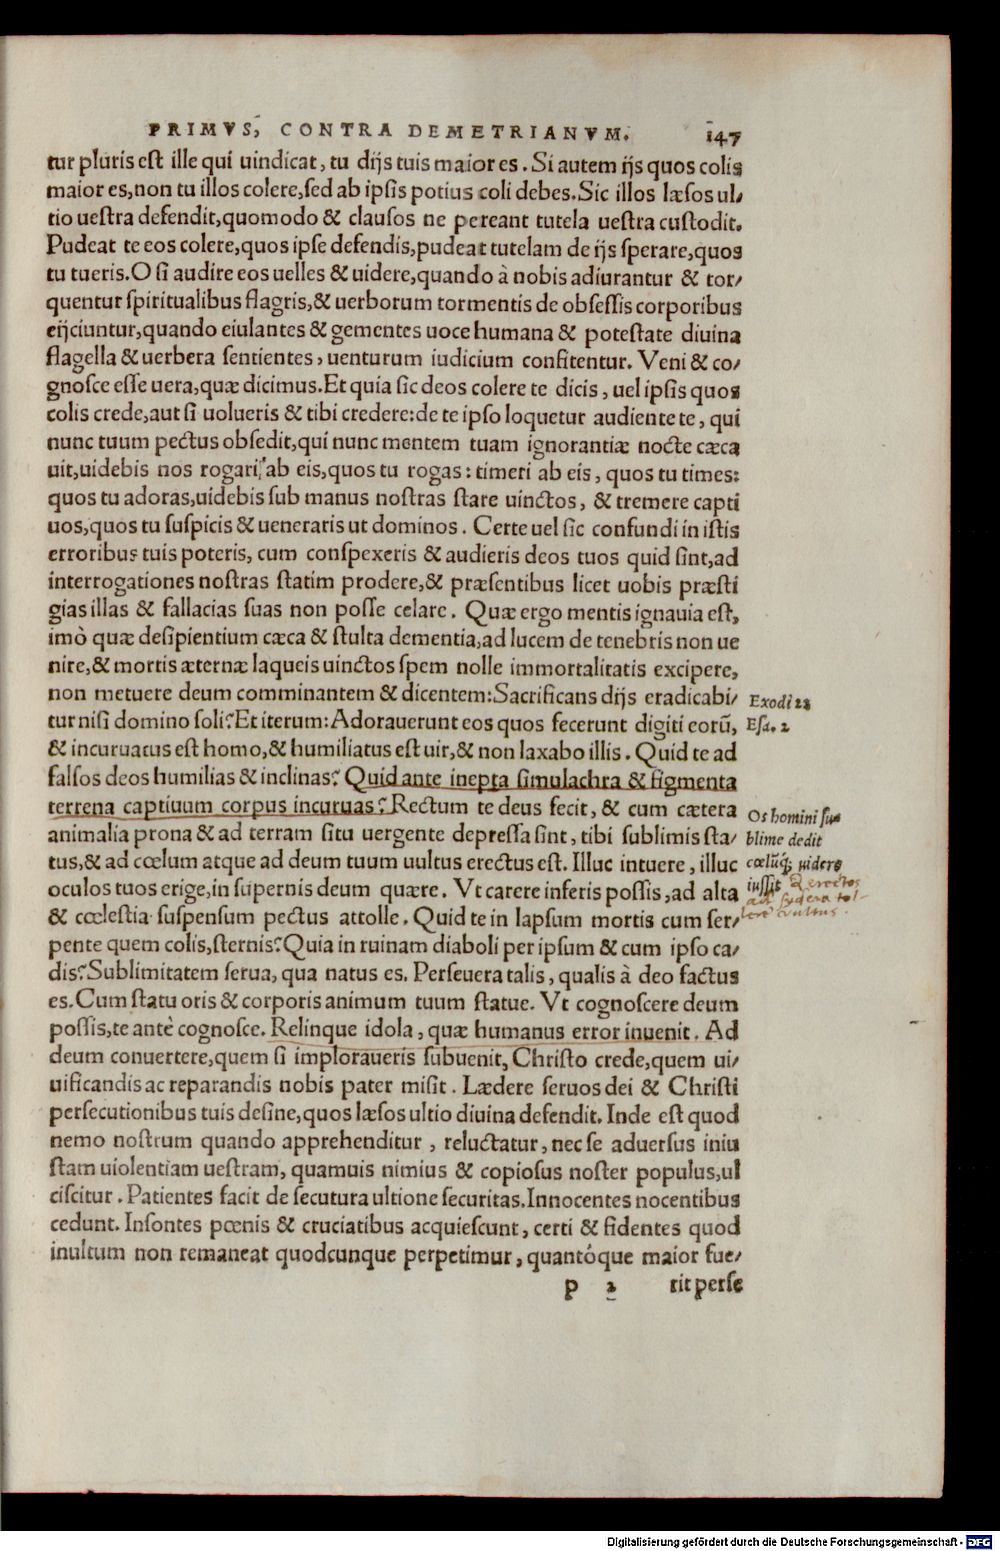 PRIMVS, CONTRA DEMETRIANVM. 147
tur pluris est ille qui uindicat, tu dijs tuis maior es. Si autem ijs quos colis
maior es, non tu illos colere, sed ab ipsis potius coli debes. Sic illos læsos ul/
tio uestra defendit, quomodo & clausos ne pereant tutela uestra custodit.
Pudeat te eos colere, quos ipse defendis, pudeat tutelam de ijs sperare, quos
tu tueris. O si audire eos uelles & uidere, quando à nobis adiurantur & tor/
quentur spiritualibus flagris, & uerborum tormentis de obsessis corporibus
eijciuntur, quando eiulantes & gementes uoce humana & potestate diuina
flagella & uerbera sentientes, uenturum iudicium confitentur. Veni & co/
gnosce esse uera, quæ dicimus. Et quia sic deos colere te dicis, uel ipsis quos
colis crede, aut si uolueris & tibi credere: de te ipso loquetur audiente te, qui
nunc tuum pectus obsedit, qui nunc mentem tuam ignorantiæ nocte cæca
uit, uidebis nos rogari ab eis, quos tu rogas: timeri ab eis, quos tu times:
quos tu adoras, uidebis sub manus nostras stare uinctos, & tremere capti
uos, quos tu suspicis & ueneraris ut dominos. Certe uel sic confundi in istis
erroribus tuis poteris, cum conspexeris & audieris deos tuos quid sint, ad
interrogationes nostras statim prodere, & præsentibus licet uobis præsti
gias illas & fallacias suas non posse celare. Quæ ergo mentis ignauia est,
imò quæ desipientium cæca & stulta dementia, ad lucem de tenebris non ue
nire, & mortis æternæ laqueis uinctos spem nolle immortalitatis excipere,
non metuere deum comminantem & dicentem: Sacrificans dijs eradicabi/
tur nisi domino soli? Et iterum: Adorauerunt eos quos fecerunt digiti eorũ,
& incuruatus est homo, & humiliatus est uir, & non laxabo illis. Quid te ad
falsos deos humilias & inclinas? Quid ante inepta simulachra & figmenta
terrena captiuum corpus incuruas? Rectum te deus fecit, & cum cætera
animalia prona & ad terram situ uergente depressa sint, tibi sublimis sta/
tus, & ad cœlum atque ad deum tuum uultus erectus est. Illuc intuere, illuc
oculos tuos erige, in supernis deum quære. Vt carere inferis possis, ad alta
& cœlestia suspensum pectus attolle. Quid te in lapsum mortis cum ser/
pente quem colis, sternis? Quia in ruinam diaboli per ipsum & cum ipso ca/
dis? Sublimitatem serua, qua natus es. Perseuera talis, qualis à deo factus
es. Cum statu oris & corporis animum tuum statue. Vt cognoscere deum
possis, te antè cognosce. Relinque idola, quæ humanus error inuenit. Ad
deum conuertere, quem si imploraueris subuenit, Christo crede, quem ui/
uificandis ac reparandis nobis pater misit. Lædere seruos dei & Christi
persecutionibus tuis desine, quos læsos ultio diuina defendit. Inde est quod
nemo nostrum quando apprehenditur, reluctatur, nec se aduersus iniu
stam uiolentiam uestram, quamuis nimius & copiosus noster populus, ul
ciscitur. Patientes facit de secutura ultione securitas. Innocentes nocentibus
cedunt. Insontes pœnis & cruciatibus acquiescunt, certi & fidentes quod
inultum non remaneat quodcunque perpetimur, quantóque maior fue/
p 2 rit perse
Exodi 22
Esa. 2
Os homini su
blime dedit
cœlũq; uidere
iussit & erectos
ad sydera tol-
lere vultus.
Digitalisierung gefördert durch die Deutsche Forschungsgemeinschaft - DFG